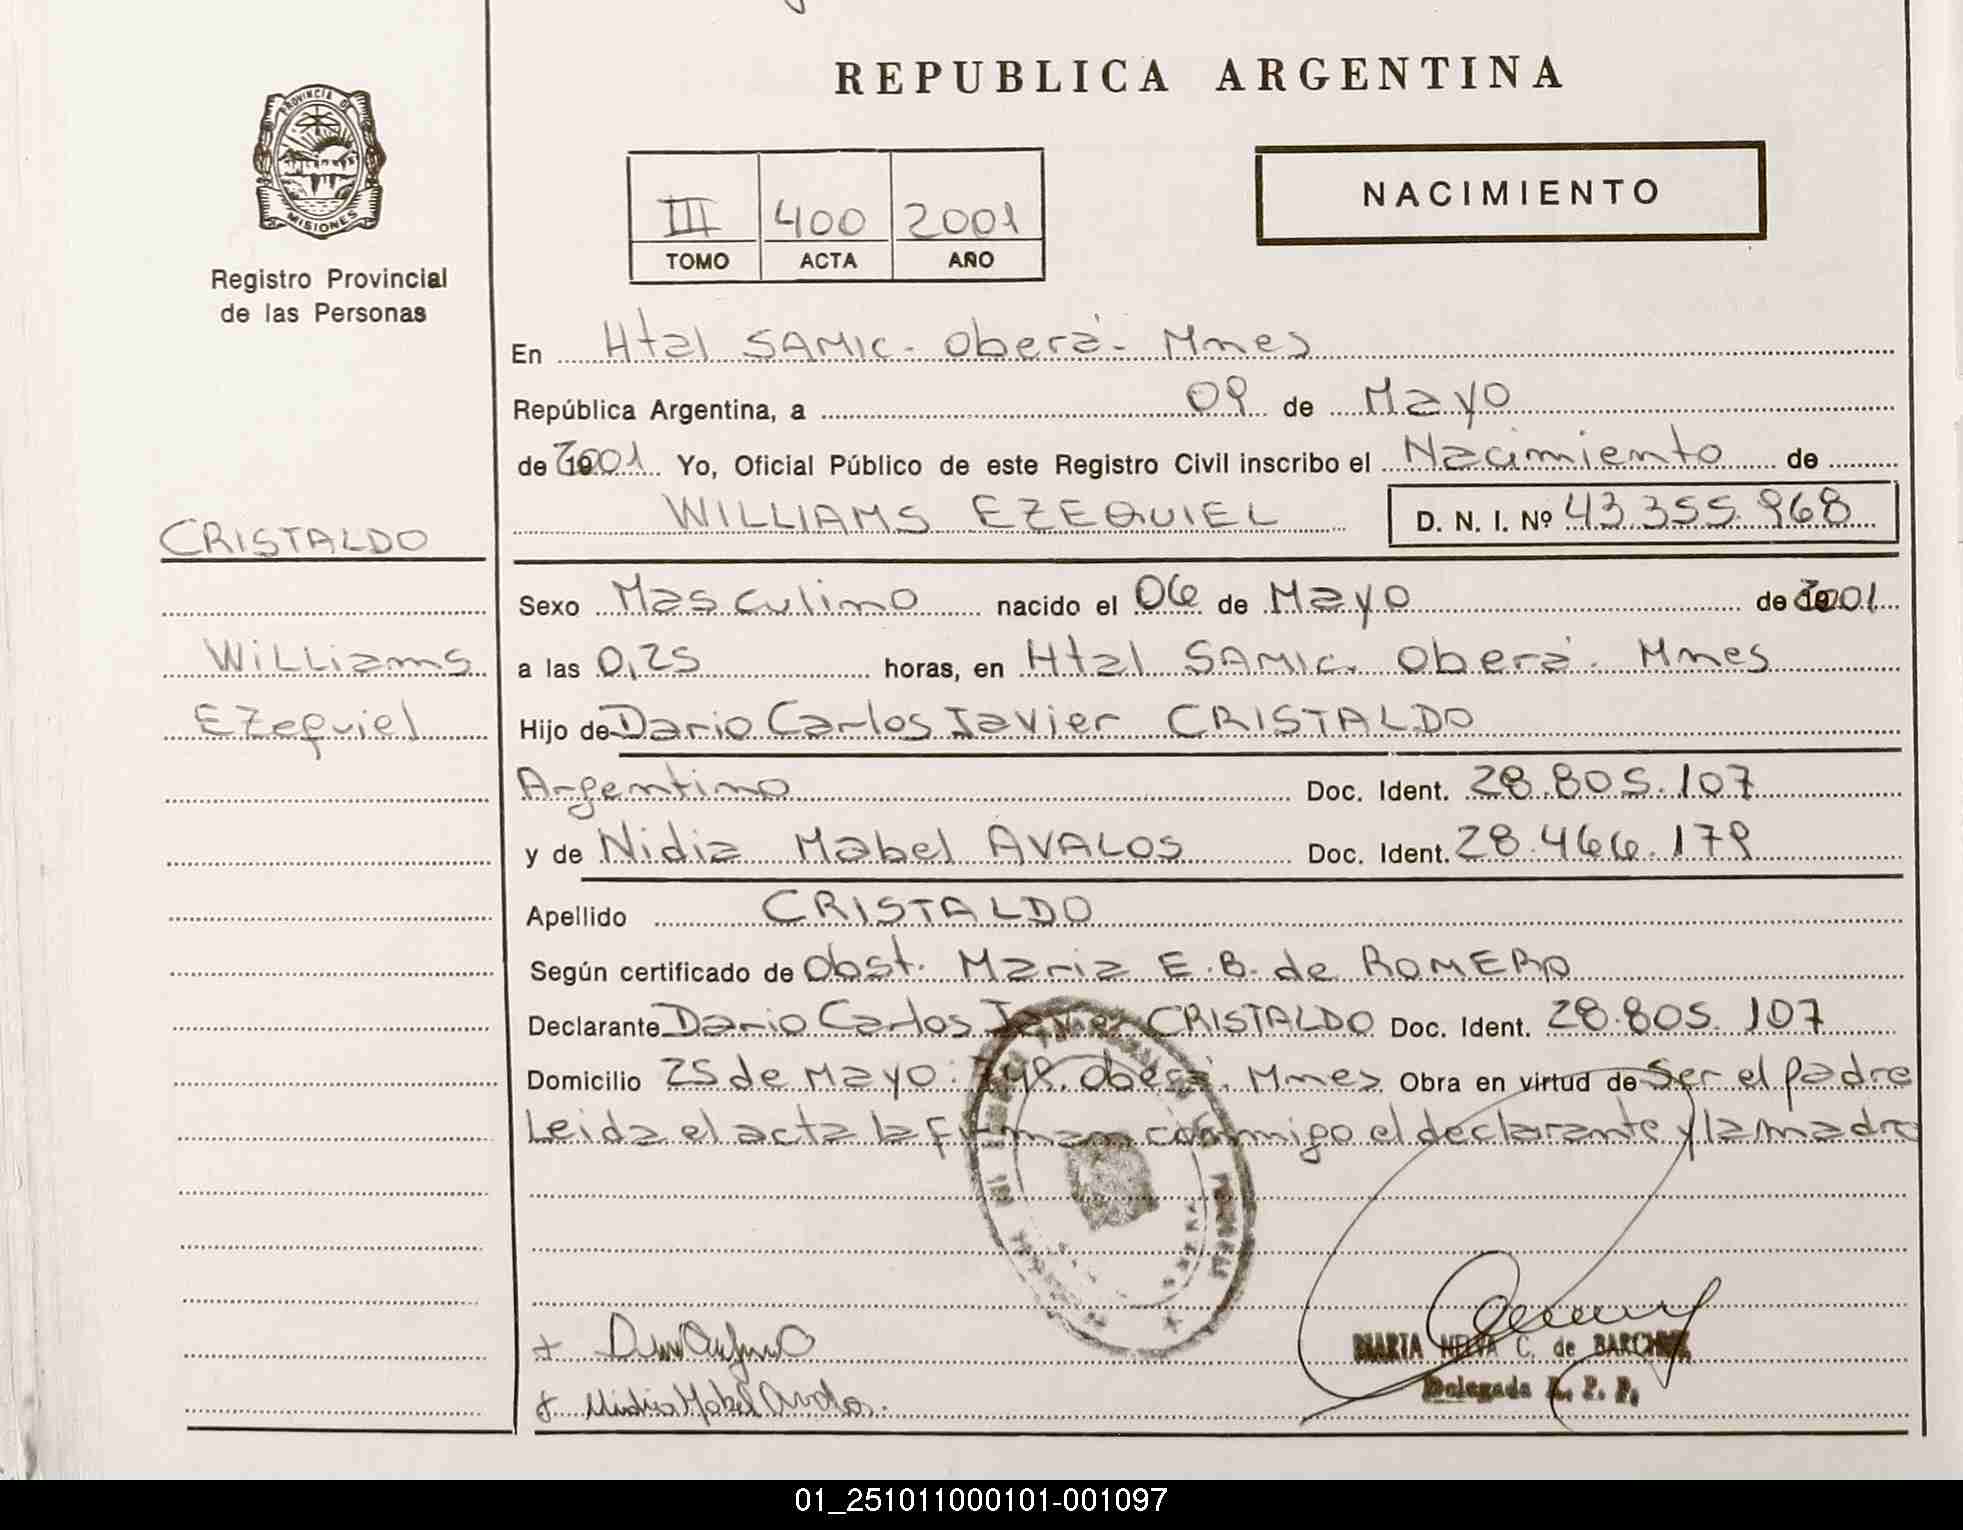 REPUBLICA ARGENTINA
PROVINCIA DE
MISIONES
Registro Provincial
de las Personas
III 400 2001
TOMO ACTA AÑO
NACIMIENTO
En Htal SAMIC. Oberá. Mnes
República Argentina, a 09 de Mayo
de 2001 Yo, Oficial Público de este Registro Civil inscribo el Nacimiento de
WILLIAMS EZEQUIEL D. N. I. Nº 43.355.968
CRISTALDO
Williams
Ezequiel
Sexo Masculino nacido el 06 de Mayo de 2001
a las 0,25 horas, en Htal SAMIC. Oberá. Mnes
Hijo de Dario Carlos Javier CRISTALDO
Argentino Doc. Ident. 28.805.107
y de Nidia Mabel AVALOS Doc. Ident. 28.466.179
Apellido CRISTALDO
Según certificado de Obst. Maria E. B. de ROMERO
Declarante Dario Carlos Javier CRISTALDO Doc. Ident. 28.805.107
Domicilio 25 de Mayo Oberá. Mnes Obra en virtud de Ser el padre
Leida el acta la firman conmigo el declarante y la madre
Nidia Mabel Avalos.
MARIA C. de
Delegada R. P. P.
01_251011000101-001097